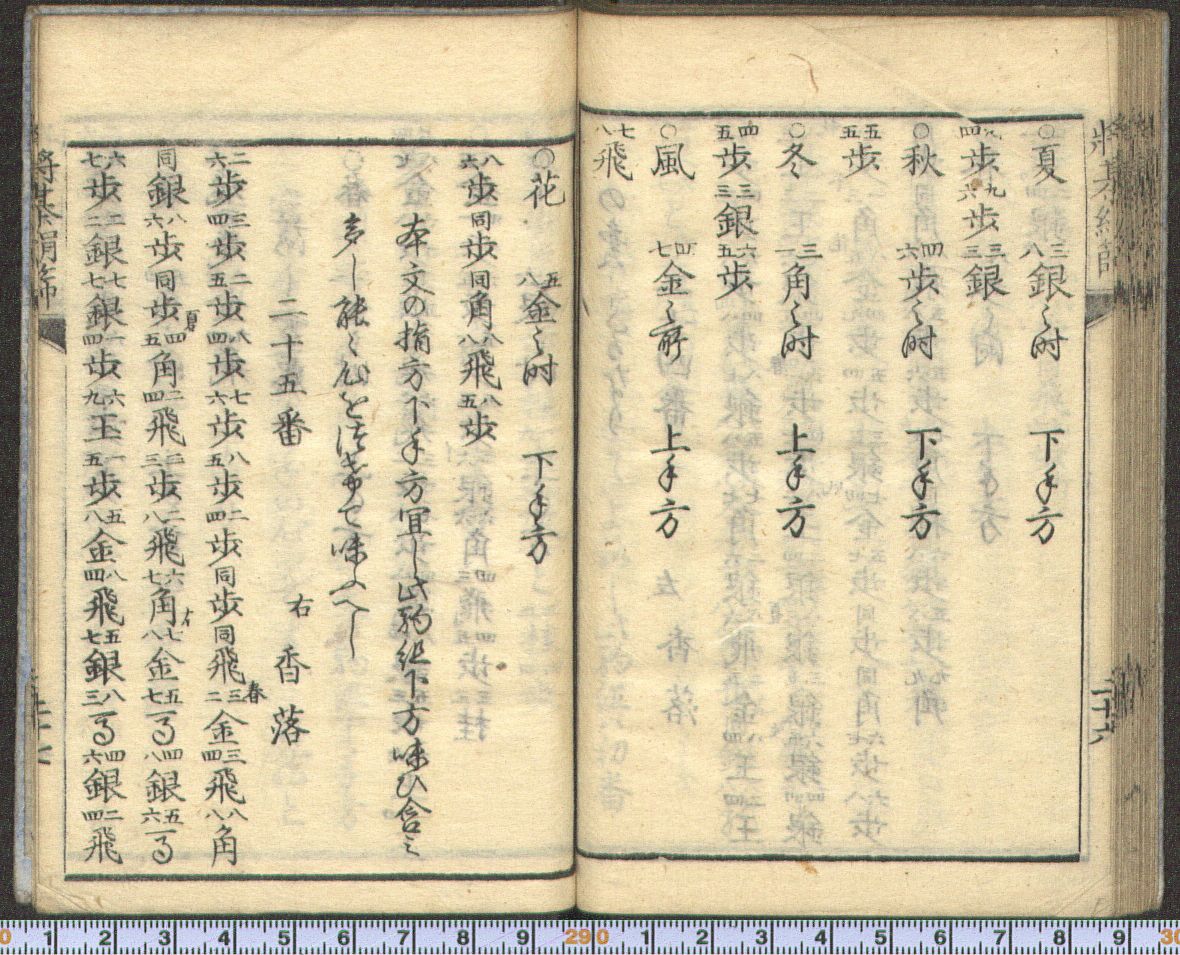 ○夏 三八銀之時 下手方
九四歩 九六歩 三三銀
○秋 四六歩之時 下手方
五五歩
○冬 三一角之時 上手方
四五歩 三三銀 六五歩
○風 四七金之所 上手方
七八飛
○花 五八金之时 下手方
八六歩 同歩 同角 八八飛 八五歩
本文の指方下手方宜し此駒組下方味ひ合ミ
多し能々心を
二十五番 右香落
二六歩 三四歩 二五歩 八四歩 七六歩 八五歩 二四歩 同歩 同飛 春 三二金 三四飛 八八角
同銀 八六歩 同歩 夏 四五角 二四飛 二三歩 二八飛 六七角 七八金 五七馬 四八銀 五六馬
六七歩 二二銀 七七銀 一四歩 六九玉 一五歩 五八金 八四飛 五七銀 八三馬 四六銀 二四飛
二十六